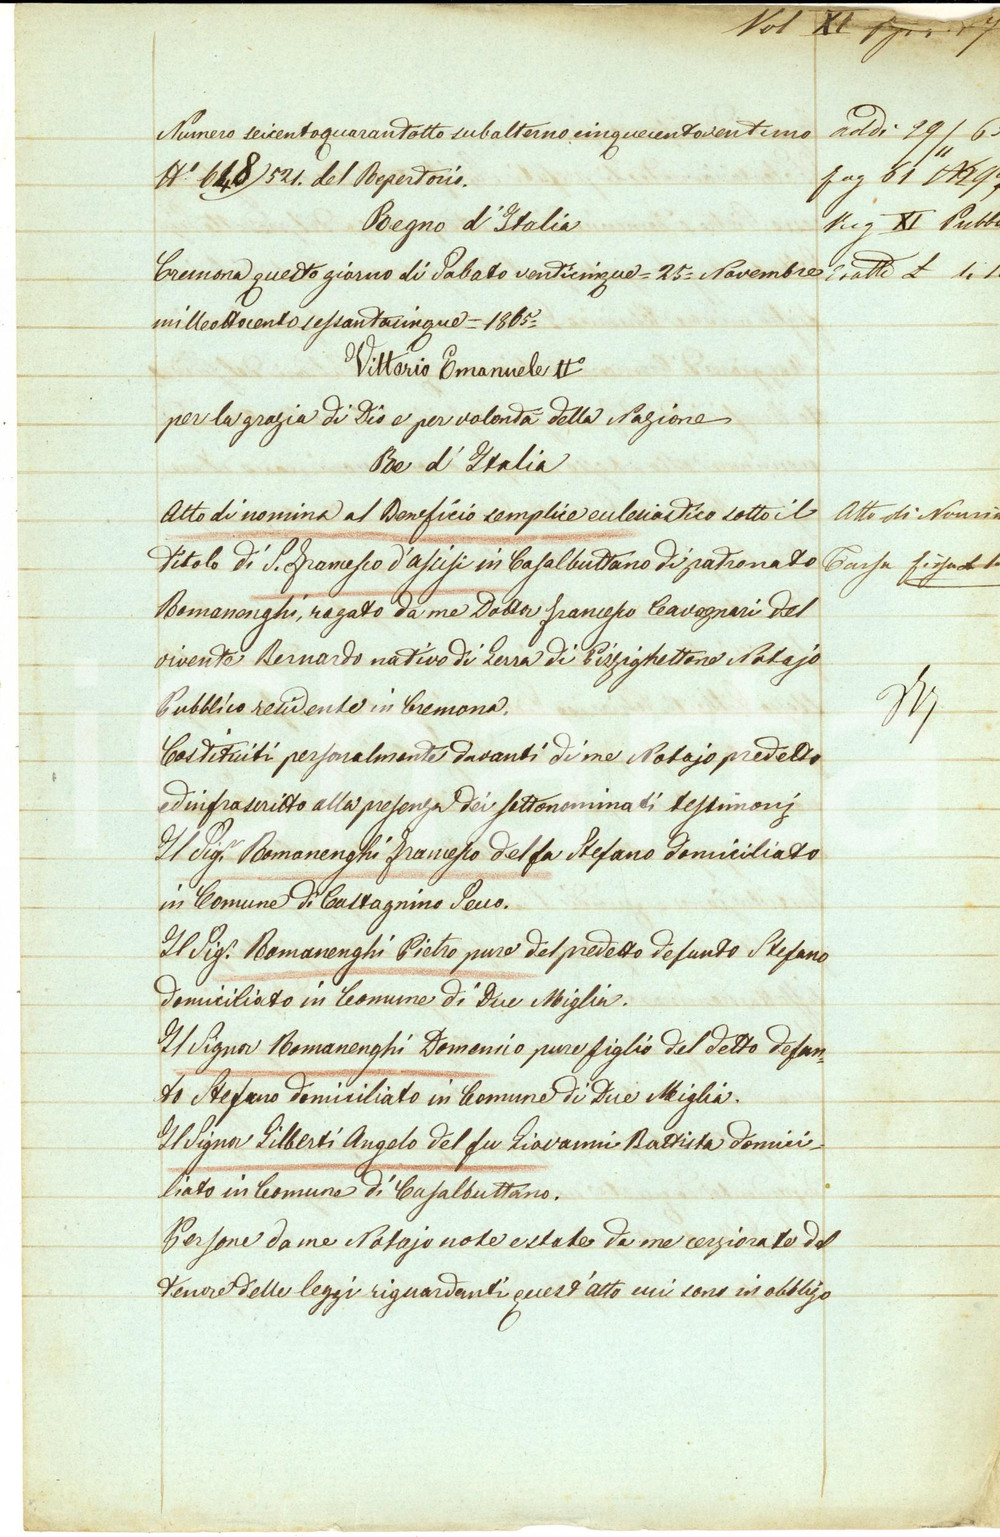 Vol XI
Numero seicentoquarantotto subalterno cinquecentoventuno
N.º 648/521. del Repertorio.
Regno d'Italia
Cremona questo giorno di Sabato venticinque = 25 = Novembre
milleottocento sessantacinque = 1865 =
Vittorio Emanuele IIº
per la grazia di Dio e per volontà della Nazione
Re d'Italia
Atto di nomina al Beneficio semplice eclesiastico sotto il
titolo di S. Francesco d'Assisi in Casalbuttano di patronato
Romanenghi, rogato da me Dottor Francesco Cavagnari del
vivente Bernardo nativo di Gerra di Pizzighettone Notajo
Pubblico residente in Cremona.
Costituiti personalmente davanti di me Notajo predetto
ed infrascritto alla presenza dei sottonominati testimonj
Il Sigr. Romanenghi Francesco del fu Stefano domiciliato
in Comune di Castagnino Secco.
Il Sigr. Romanenghi Pietro pure del predetto defunto Stefano
domiciliato in Comune di Due Miglia.
Il Signor Romanenghi Domenico pure figlio del detto defun-
to Stefano domiciliato in Comune di Due Miglia.
Il Signor Gilberti Angelo del fu Giovanni Battista domici-
liato in Comune di Casalbuttano.
Persone da me Notajo note e state da me cerziorate del
tenore delle leggi riguardanti quest'atto cui sono in obbligo
addi 29/
fog 61
Reg XI Pubb
Esatte L
Atto di Nomin
Tassa fissa L